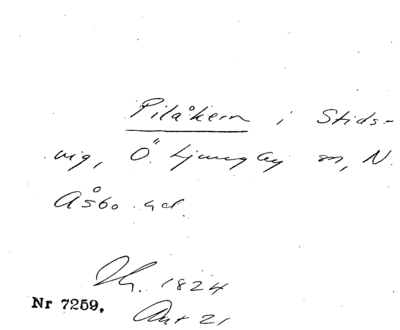 Pilåkern i Stids-
vig, Ö. Ljungby sn, N.
Åsbo hd.
1824
Nr 7259.
Akt 21